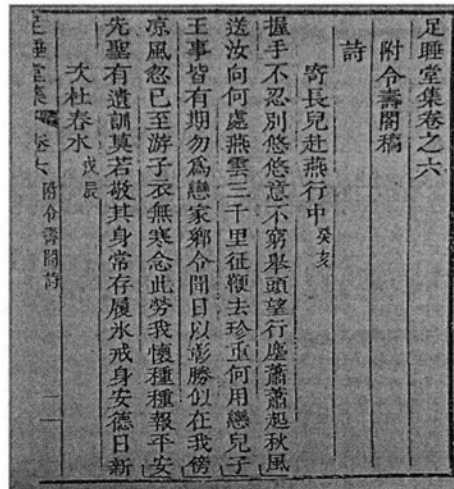 足睡堂集卷之六
附令壽閤稿
詩
寄長兒赴燕行中 癸亥
握手不忍別悠悠意不窮舉頭望行塵蕭蕭起秋風
送汝向何處燕雲三千里征鞭去珍重何用戀兒子
王事皆有期勿爲戀家鄉令聞日以彰勝似在我傍
凉風忽已至游子衣無寒念此勞我懷種種報平安
先聖有遺訓莫若敬其身常存履氷戒身安德日新
次杜春水 戊辰
足睡堂集 卷六 附令壽閤詩 一